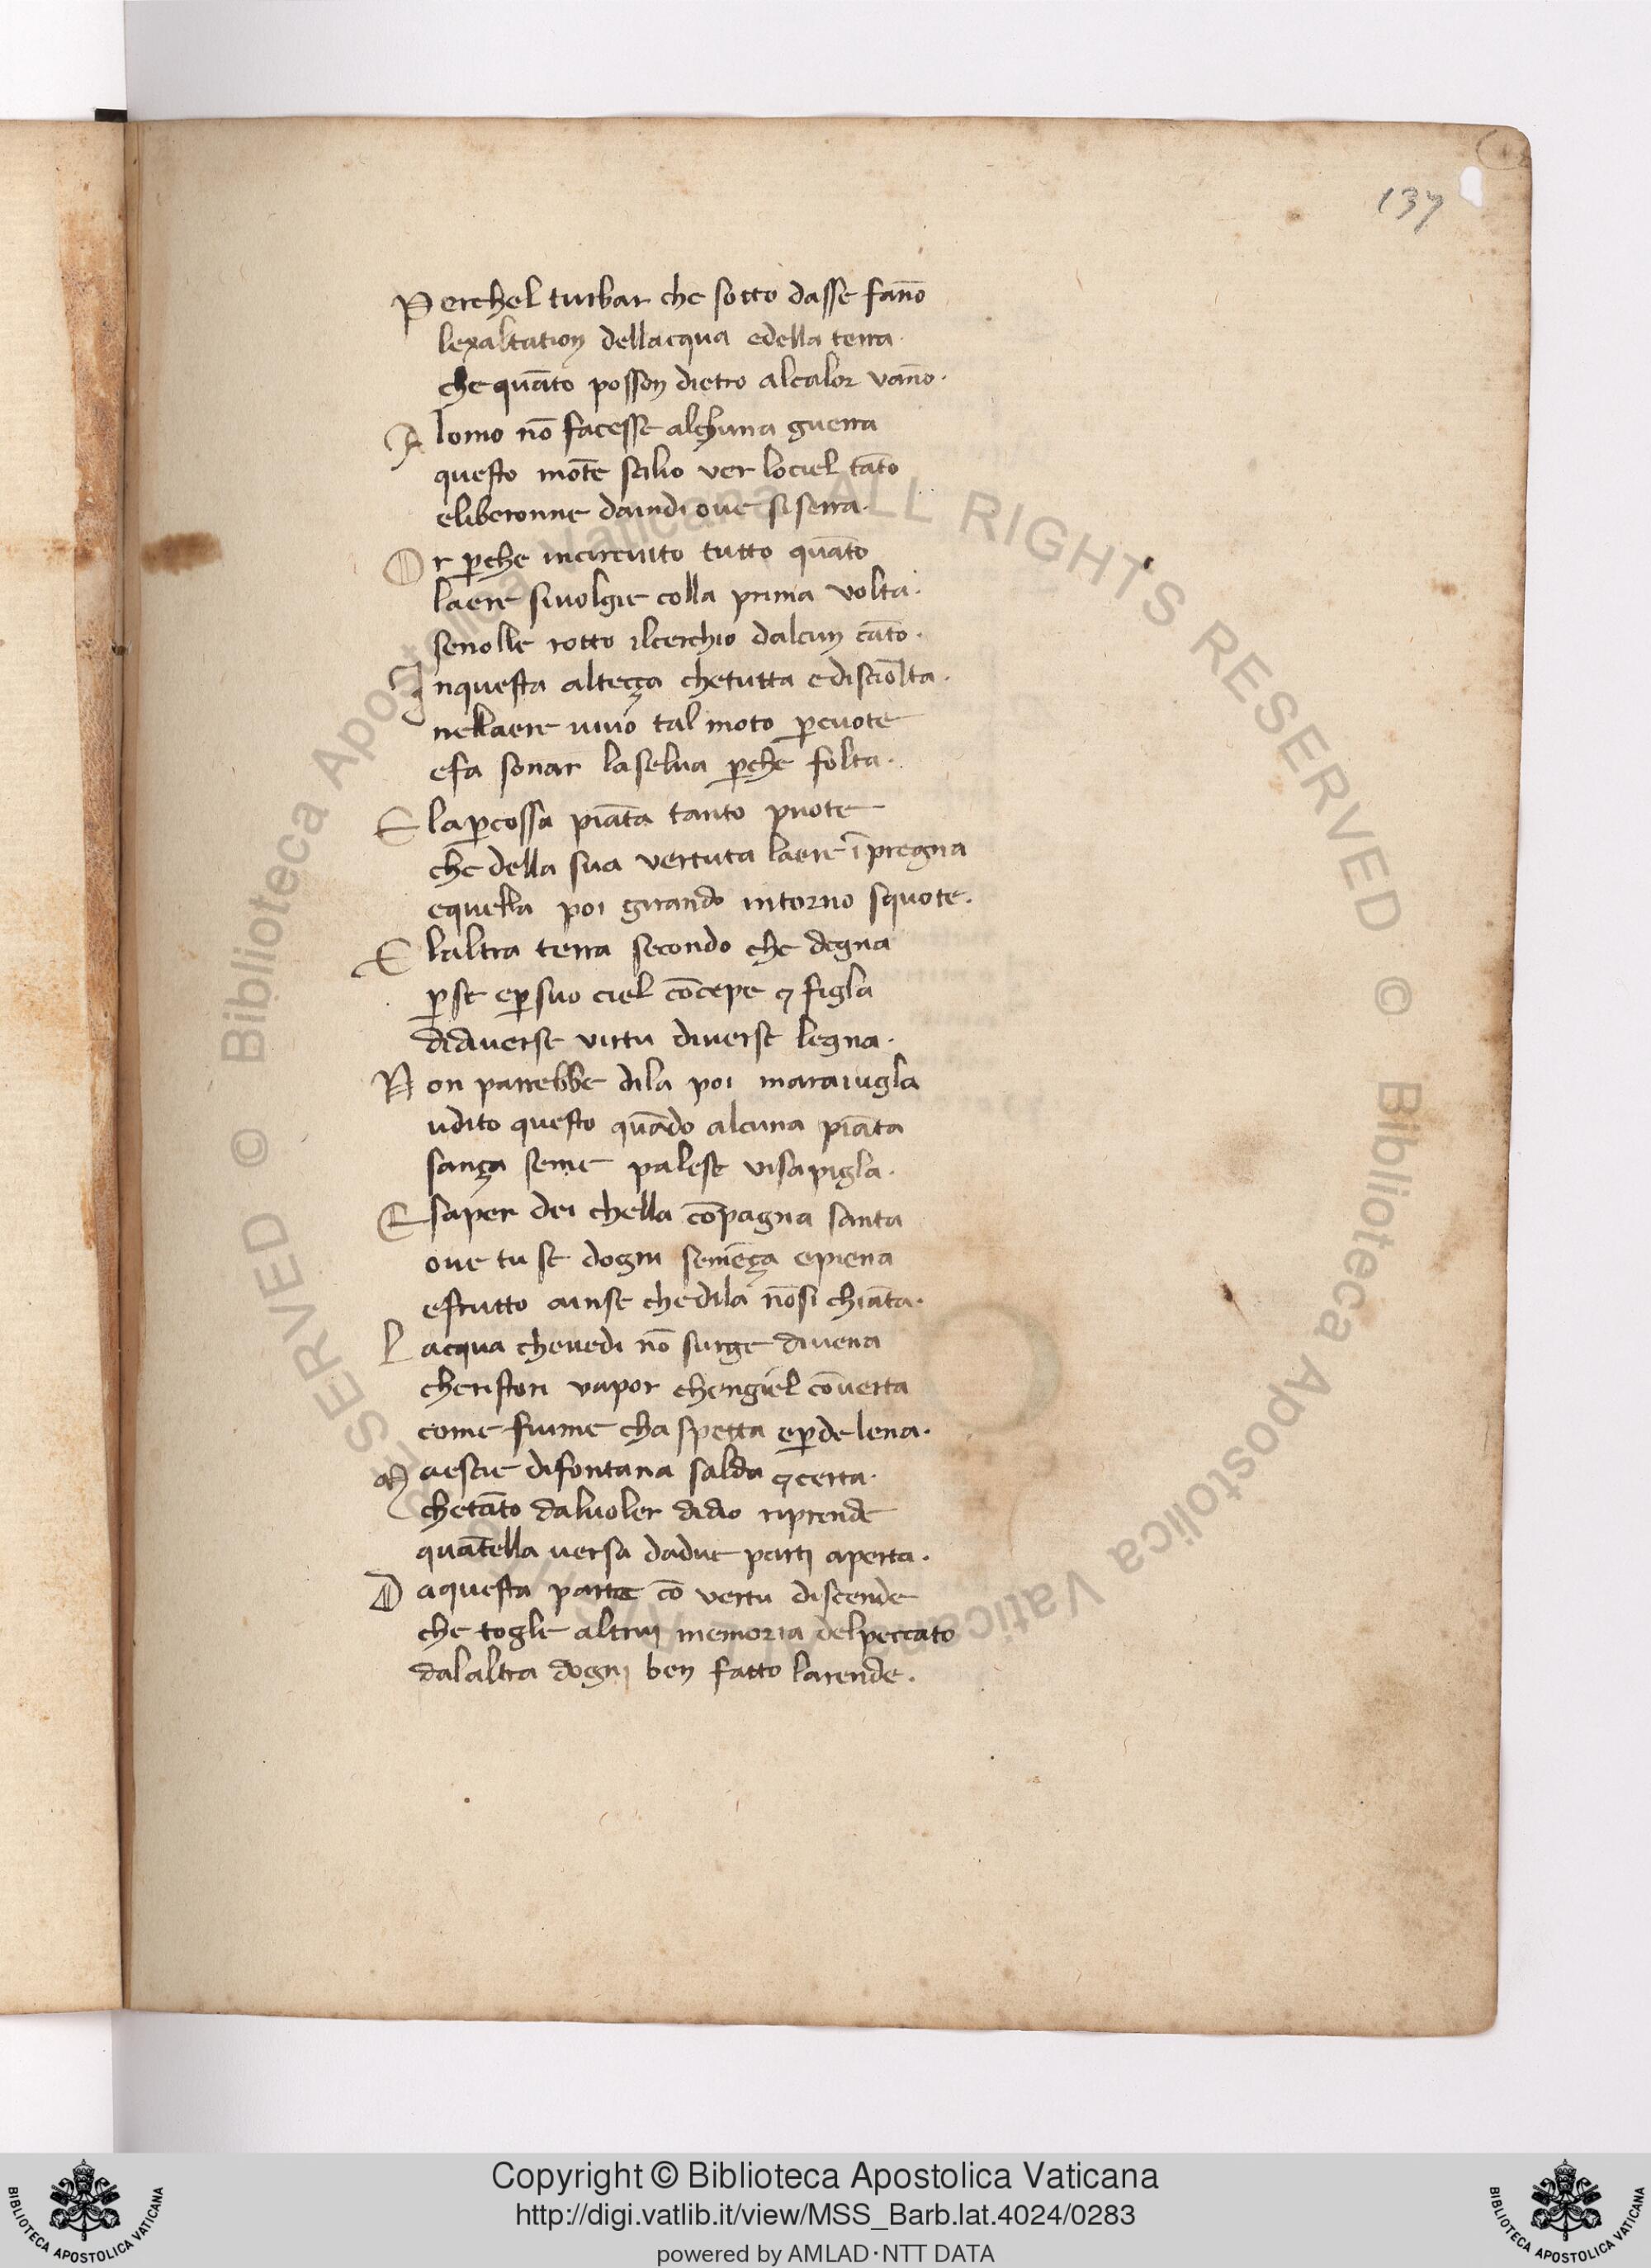 137
Perchel turbar che sotto dasse fāno
lexaltation dellacqua edella terra.
che quāto posson dietro alcalor vāno.
Alomo nō facesse alchuna guerra
questo mōte salio ver lociel tāto
eliberonne daindi oue si serra.
Or ꝑche incircuito tutto quāto
laere siuolgie colla prima volta.
senolle rotto ilcerchio dalcun cāto.
Inquesta alteçça chetutta edisciolta.
nellaere uiuo tal moto ꝑcuote
efa sonar laselua ꝑche folta.
E laꝑcossa piāta tanto puote
che della sua vertuta laere īpregna
equella poi girando intorno squote.
E laltra terra secondo che degna
ꝑse eꝑsuo ciel cōcepe ⁊ figla
didiuerse virtu diuerse legna.
Non parrebbe dila poi marauigla
udito questo quādo alcuna piāta
sança seme palese visapigla.
E saper dei chella cōpagna santa
oue tu se dogni semēça epiena
efrutto ainse chedila nōsi chiāta.
Lacqua cheuedi nō surge diuena
cheristori vapor chengiel cōuerta
come fiume cha spetta eꝑde lena.
Maescie difontana salda ⁊certa.
chetāto daluoler didio riprende
quātella uersa dadue parti aperta.
Daquesta parte cō vertu discende
che togle altrui memoria delpeccato
dalaltra dogni ben fatto larende.
© Biblioteca Apostolica Vaticana ALL RIGHTS RESERVED © Biblioteca Apostolica Vaticana ALL RIGHTS RESERVED
Copyright © Biblioteca Apostolica Vaticana
http://digi.vatlib.it/view/MSS_Barb.lat.4024/0283
powered by AMLAD·NTT DATA
BIBLIOTECA APOSTOLICA VATICANA
BIBLIOTECA APOSTOLICA VATICANA